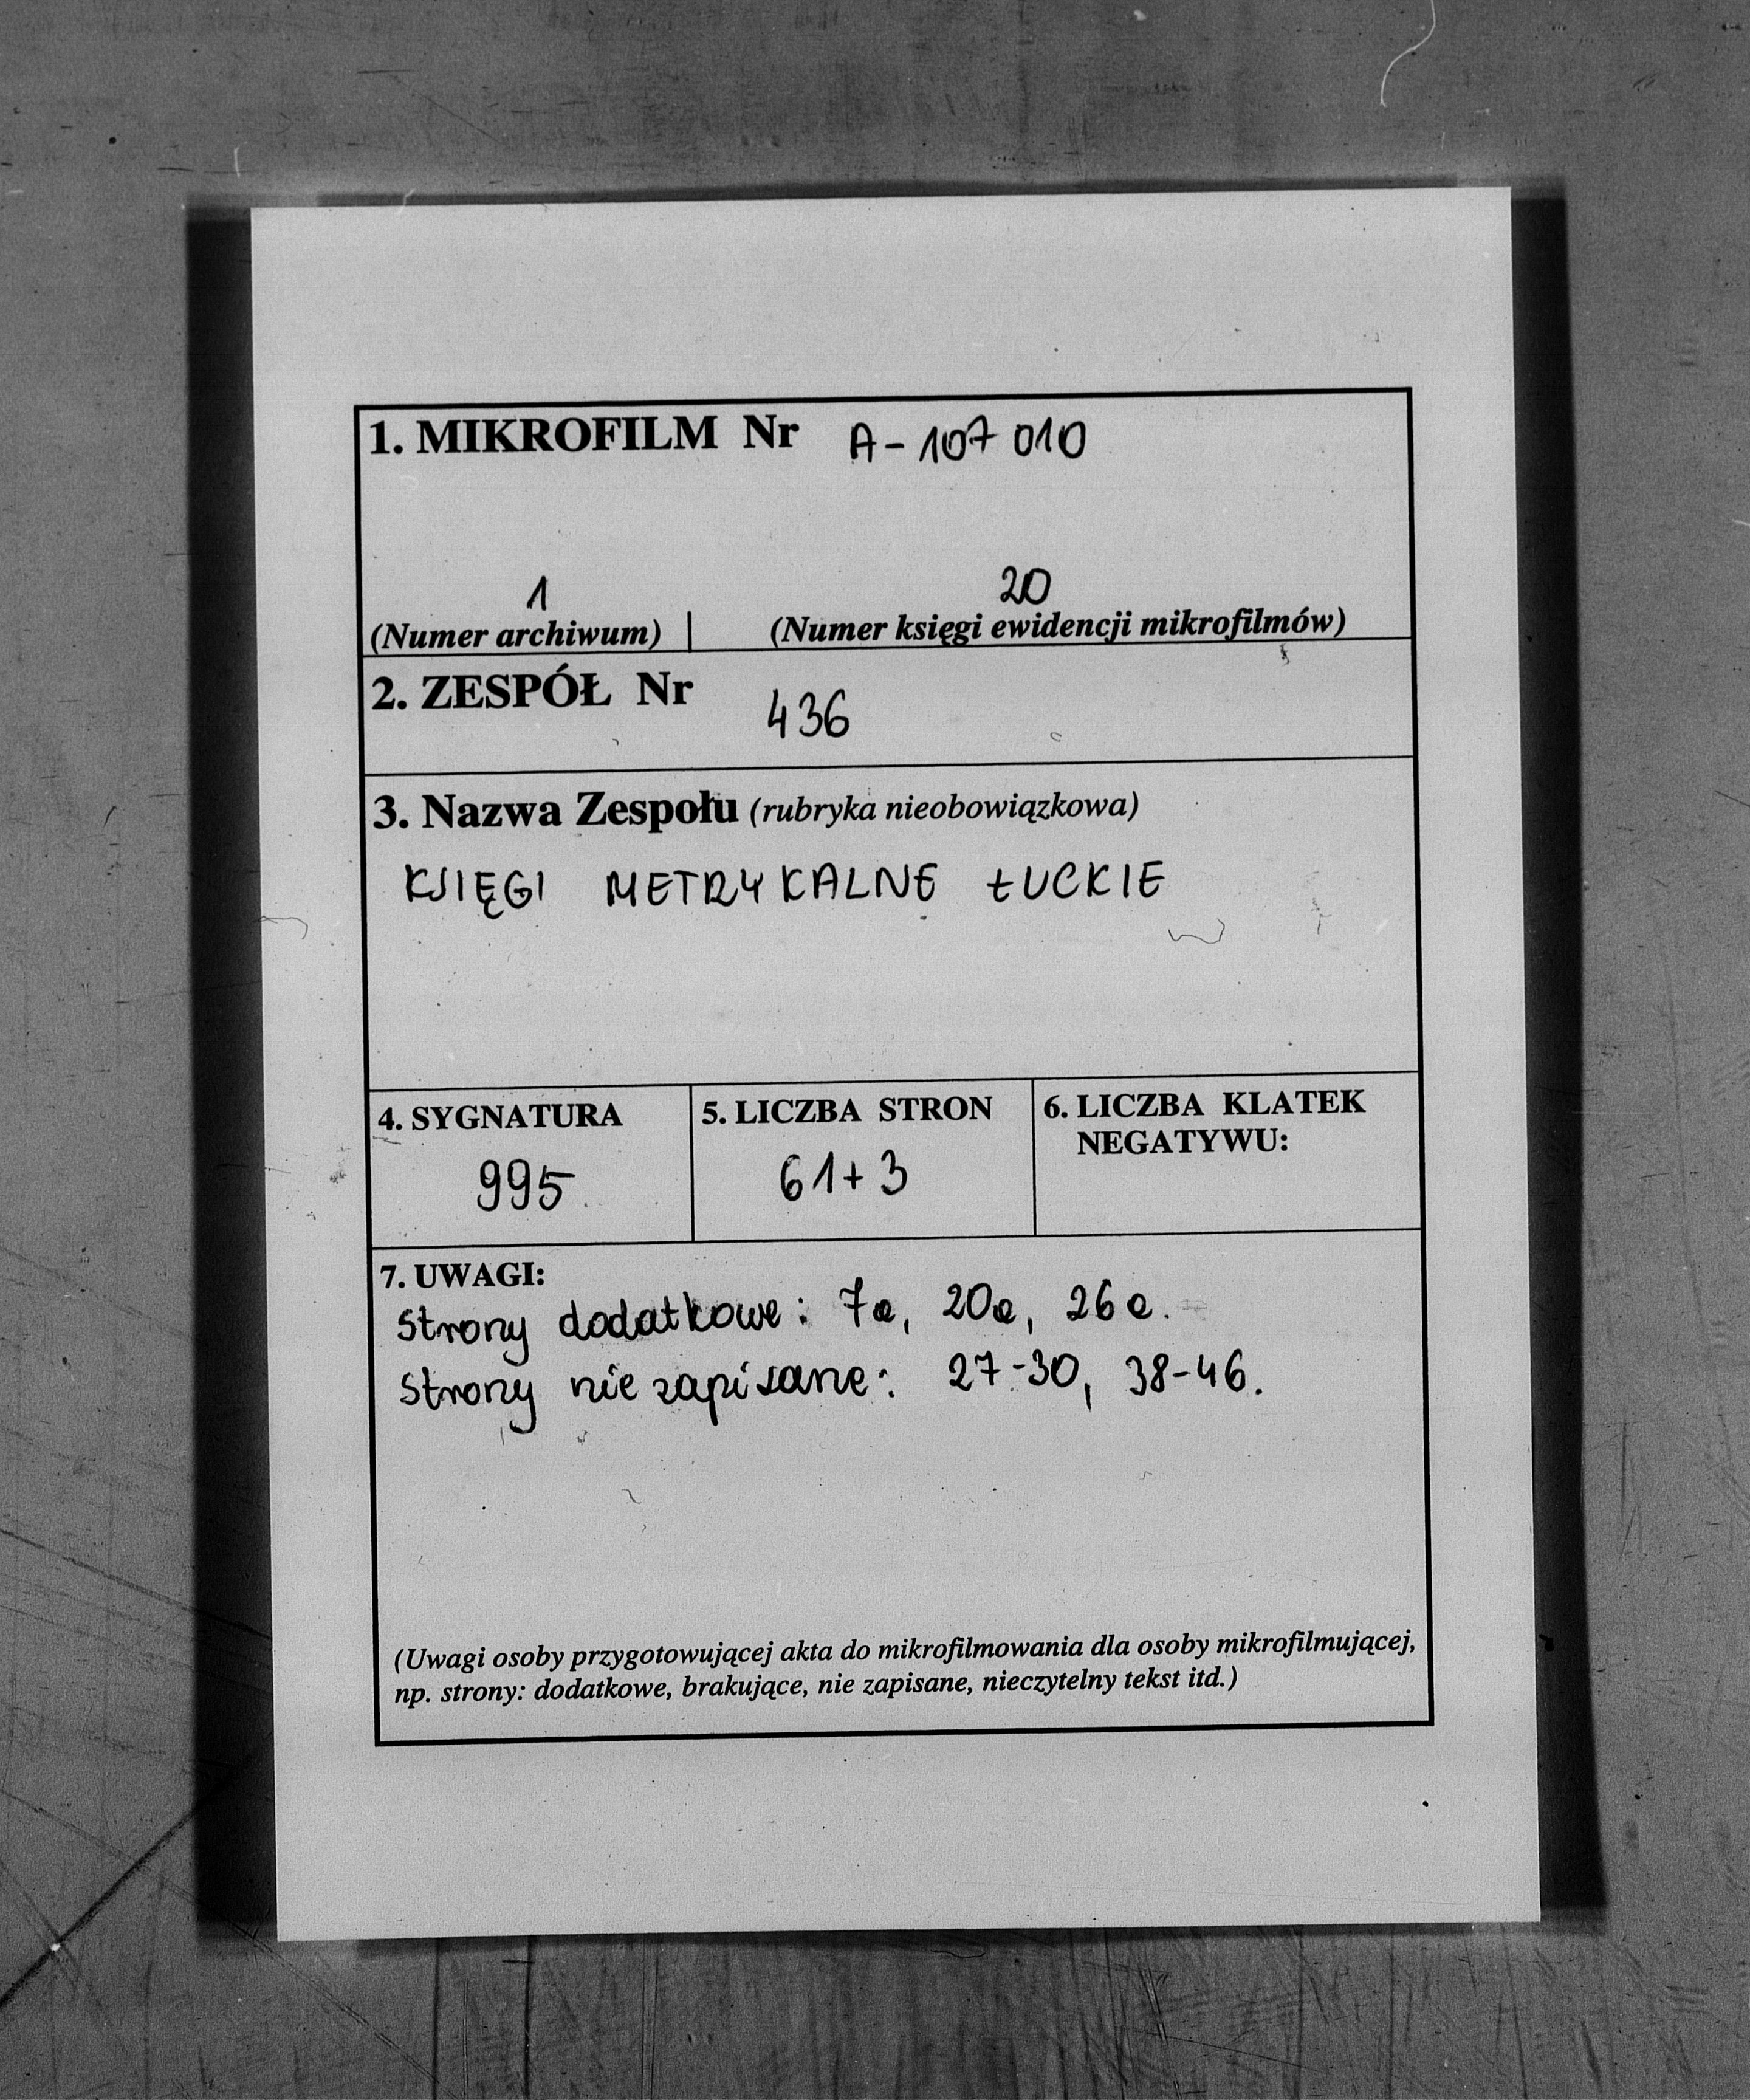 1. MIKROFILM Nr A-107 010
1 20
(Numer archiwum) | (Numer księgi ewidencji mikrofilmów)
2. ZESPÓŁ Nr 436
3. Nazwa Zespołu (rubryka nieobowiązkowa)
KSIĘGI METRYKALNE ŁUCKIE
4. SYGNATURA 5. LICZBA STRON 6. LICZBA KLATEK
NEGATYWU:
995 61+3
7. UWAGI:
Strony dodatkowe: 7a, 20a, 26a.
Strony nie zapisane: 27-30, 38-46.
(Uwagi osoby przygotowującej akta do mikrofilmowania dla osoby mikrofilmującej,
np. strony: dodatkowe, brakujące, nie zapisane, nieczytelny tekst itd.)